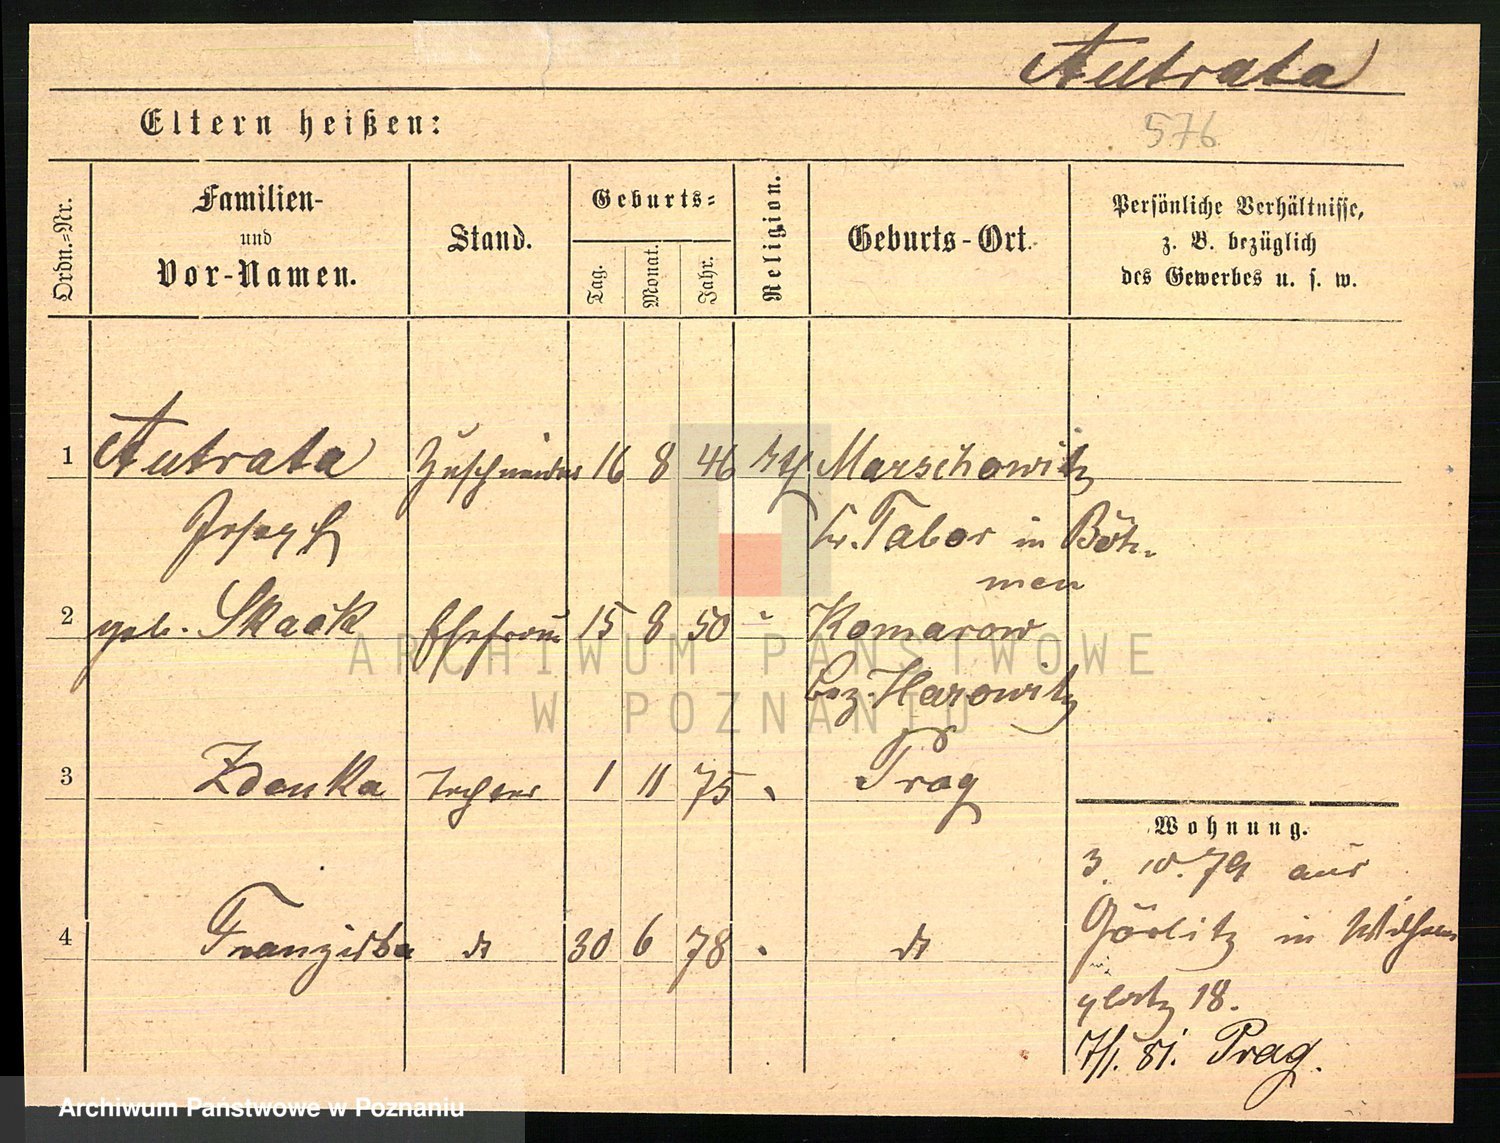 Autrata
Eltern heißen:
576
Ordn.=Nr.
Familien-
und
Vor-Namen.
Stand.
Geburts=
Tag.
Monat.
Jahr.
Religion.
Geburts-Ort.
Persönliche Verhältnisse,
z. B. bezüglich
des Gewerbes u. s. w.
1 Autrata Zuschneider 16 8 46 kth Marschowitz
Joseph Kr. Tabor in Böh-
men
2 geb. Skaák Ehefrau 15 8 50 " Komarow
bez. Harowitz
3 Zdenka Tochter 1 11 75 Prag
Wohnung.
3. 10. 79 aus
4 Franziska do 30 6 78 do
Görlitz in Wilhelms
platz 18.
7/1. 81. Prag.
ARCHIWUM PAŃSTWOWE
W POZNANIU
Archiwum Państwowe w Poznaniu